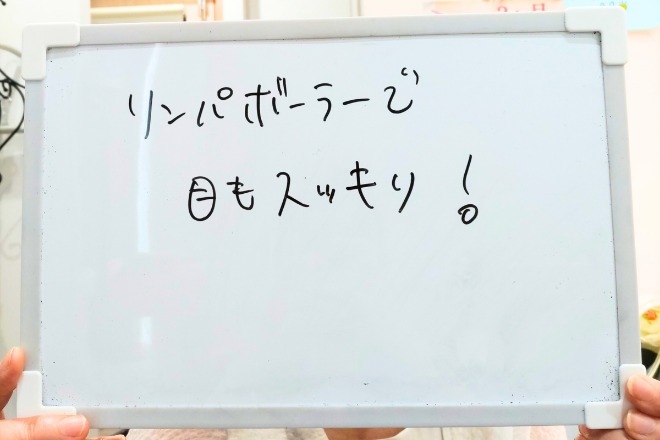 リンパボーラーで
目もスッキリ!